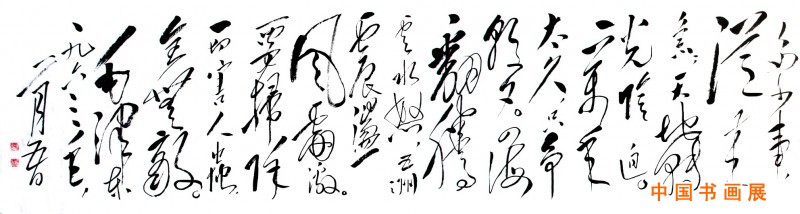 多少事,
从来
急。天地转,
光阴迫。
一万年
太久,只争
朝夕。四海
翻腾
云水怒,五洲
震荡
风雷激。
要扫除
一切害人虫,
全无敌。
毛泽东
一九六三年,
中国书画展